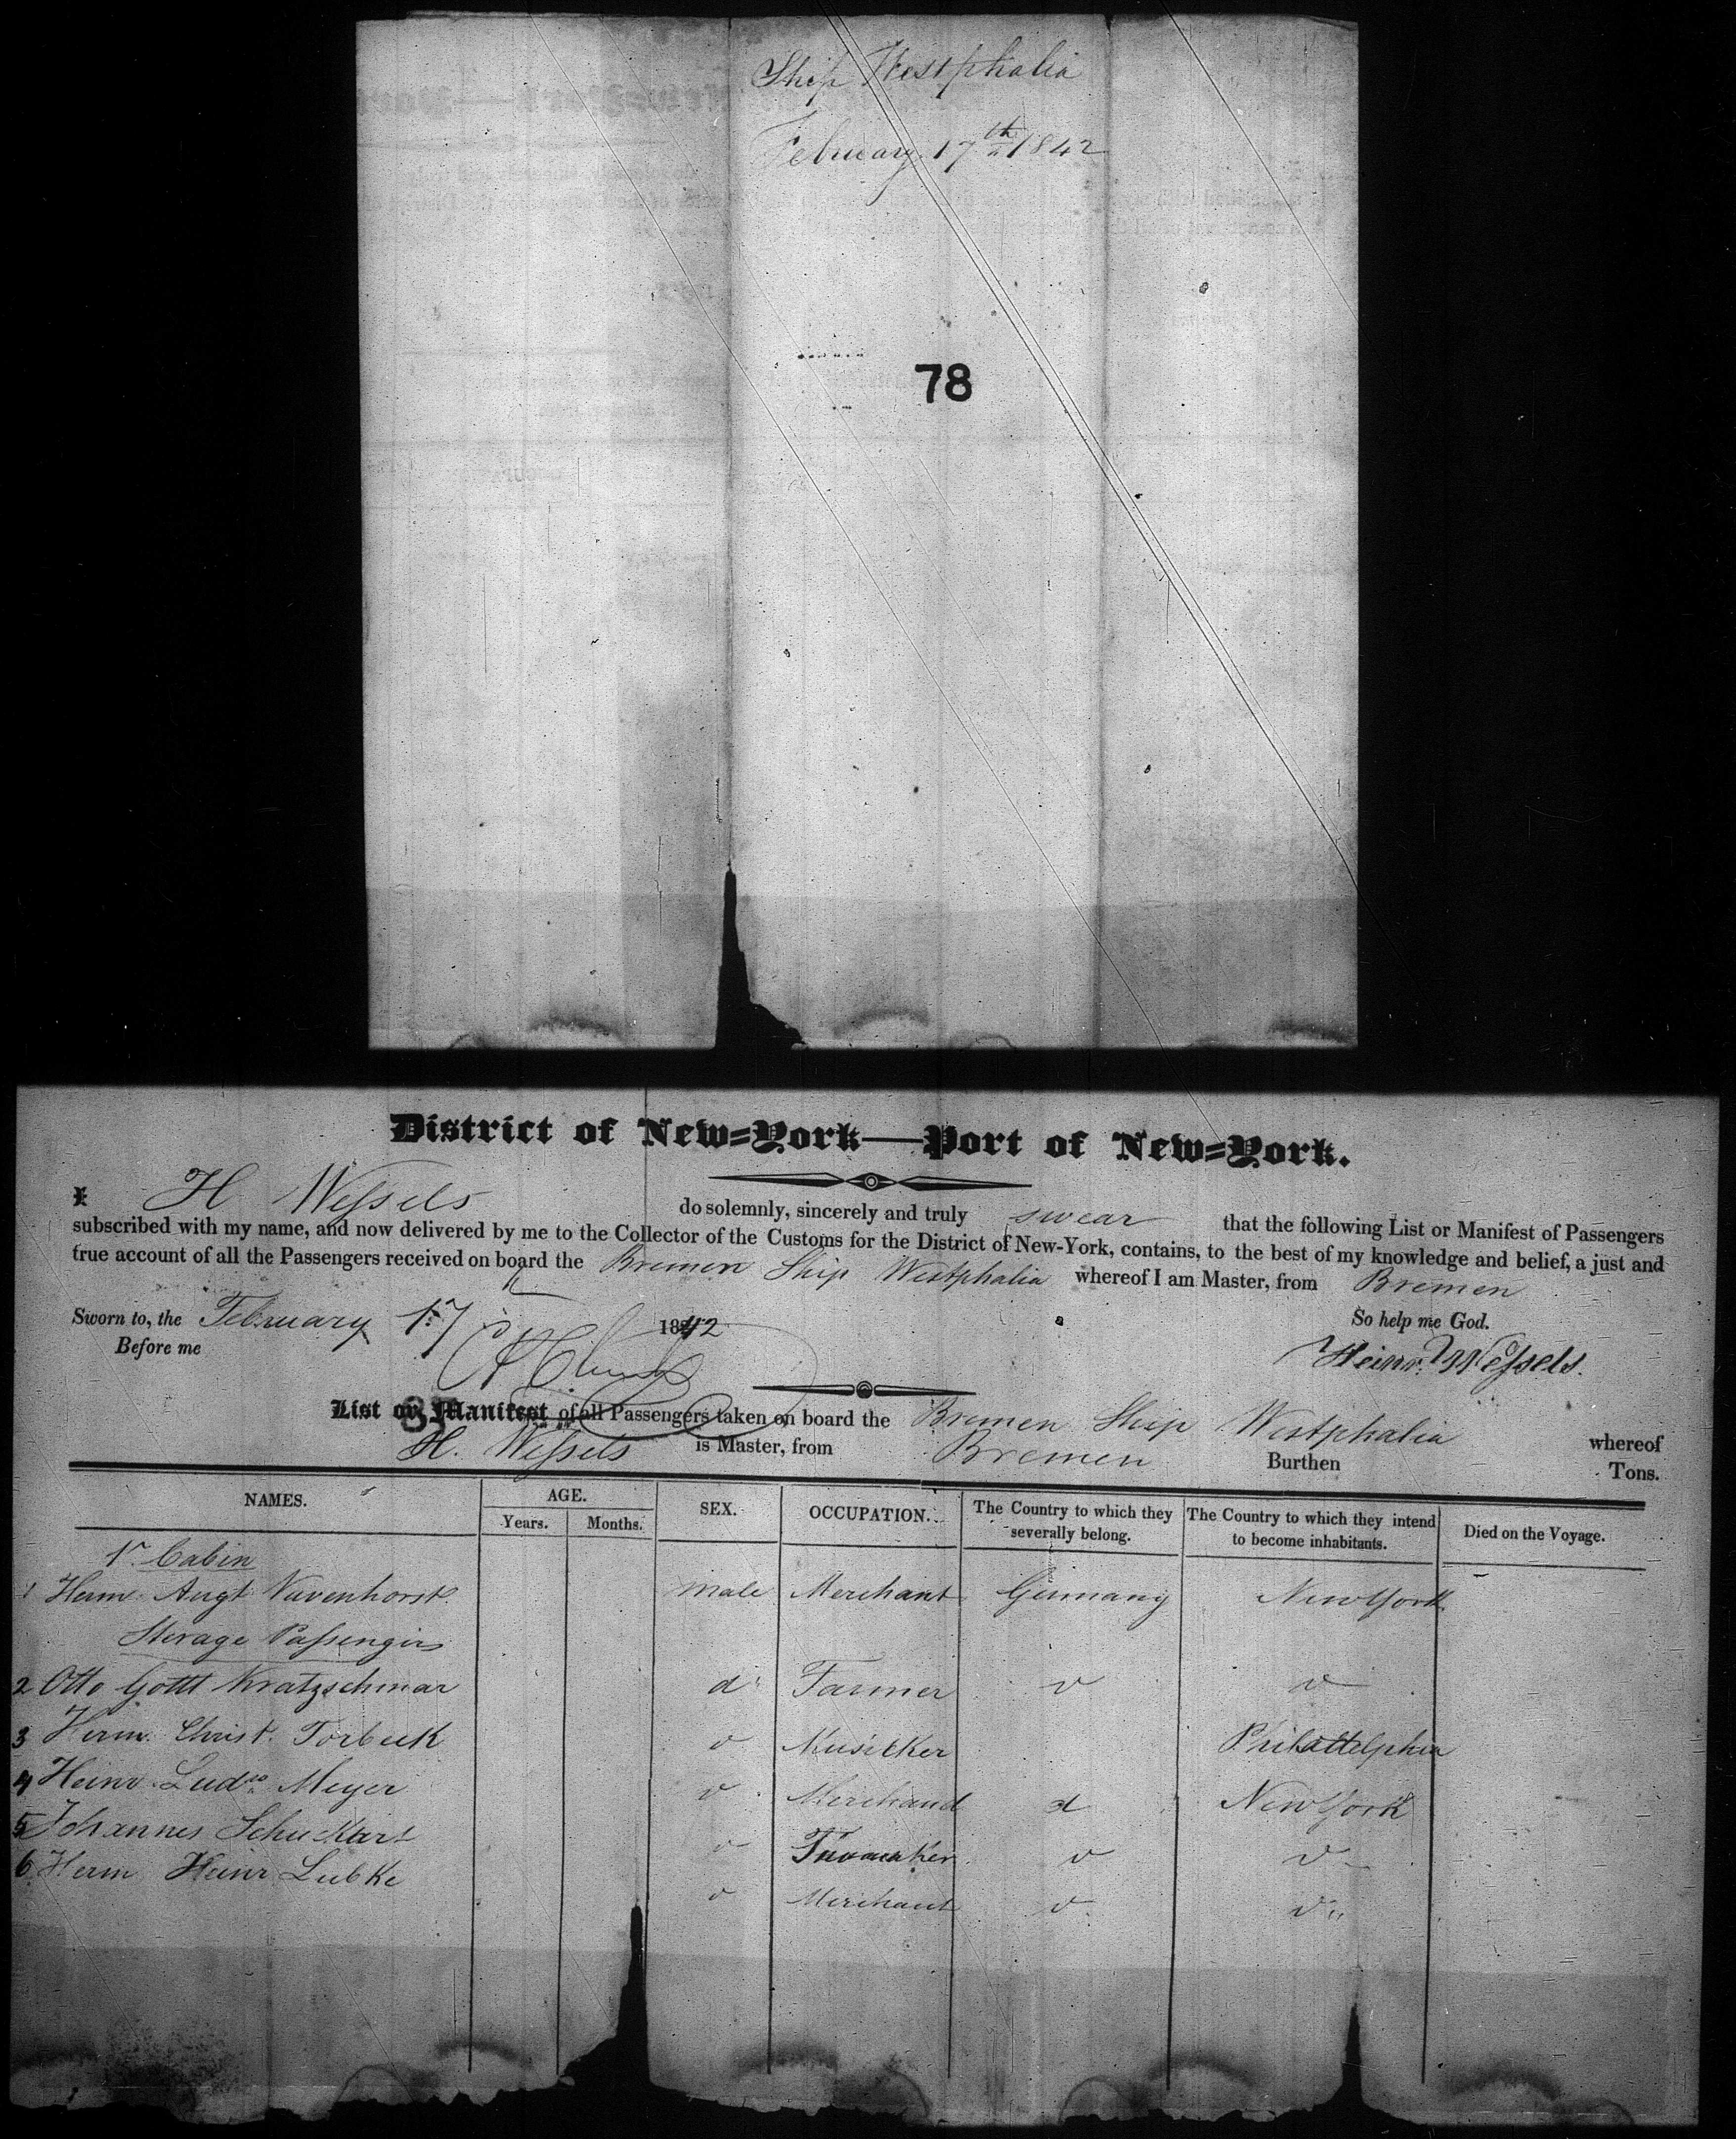 Ship Westphalia
February 17th 1842
78
District of New=York—Port of New=York.
I H Wessels do solemnly, sincerely and truly swear that the following List or Manifest of Passengers
subscribed with my name, and now delivered by me to the Collector of the Customs for the District of New-York, contains, to the best of my knowledge and belief, a just and
true account of all the Passengers received on board the Bremen Ship Westphalia whereof I am Master, from Bremen
Sworn to, the February 17 1842 So help me God.
Before me Heinr. Wessels.
List or Manifest of all Passengers taken on board the Bremen Ship Westphalia whereof
H. Wessels is Master, from Bremen Burthen Tons.
NAMES. AGE. Years. Months. SEX. OCCUPATION. The Country to which they severally belong. The Country to which they intend to become inhabitants. Died on the Voyage.
1r Cabin
1 Herm. Augt Vavenhorst. male Merchant Germany New York
Sterage Passengers
2 Otto Gottl Kratzschmar d Farmer v v
3 Herm. Christ. Torbeck v Musicker Philadelphia
4 Heinr. Ludw Meyer v Merchand d New York
5 Johannes Schuckart v v v
6 Herm Heinr Lubke v Merchant v v